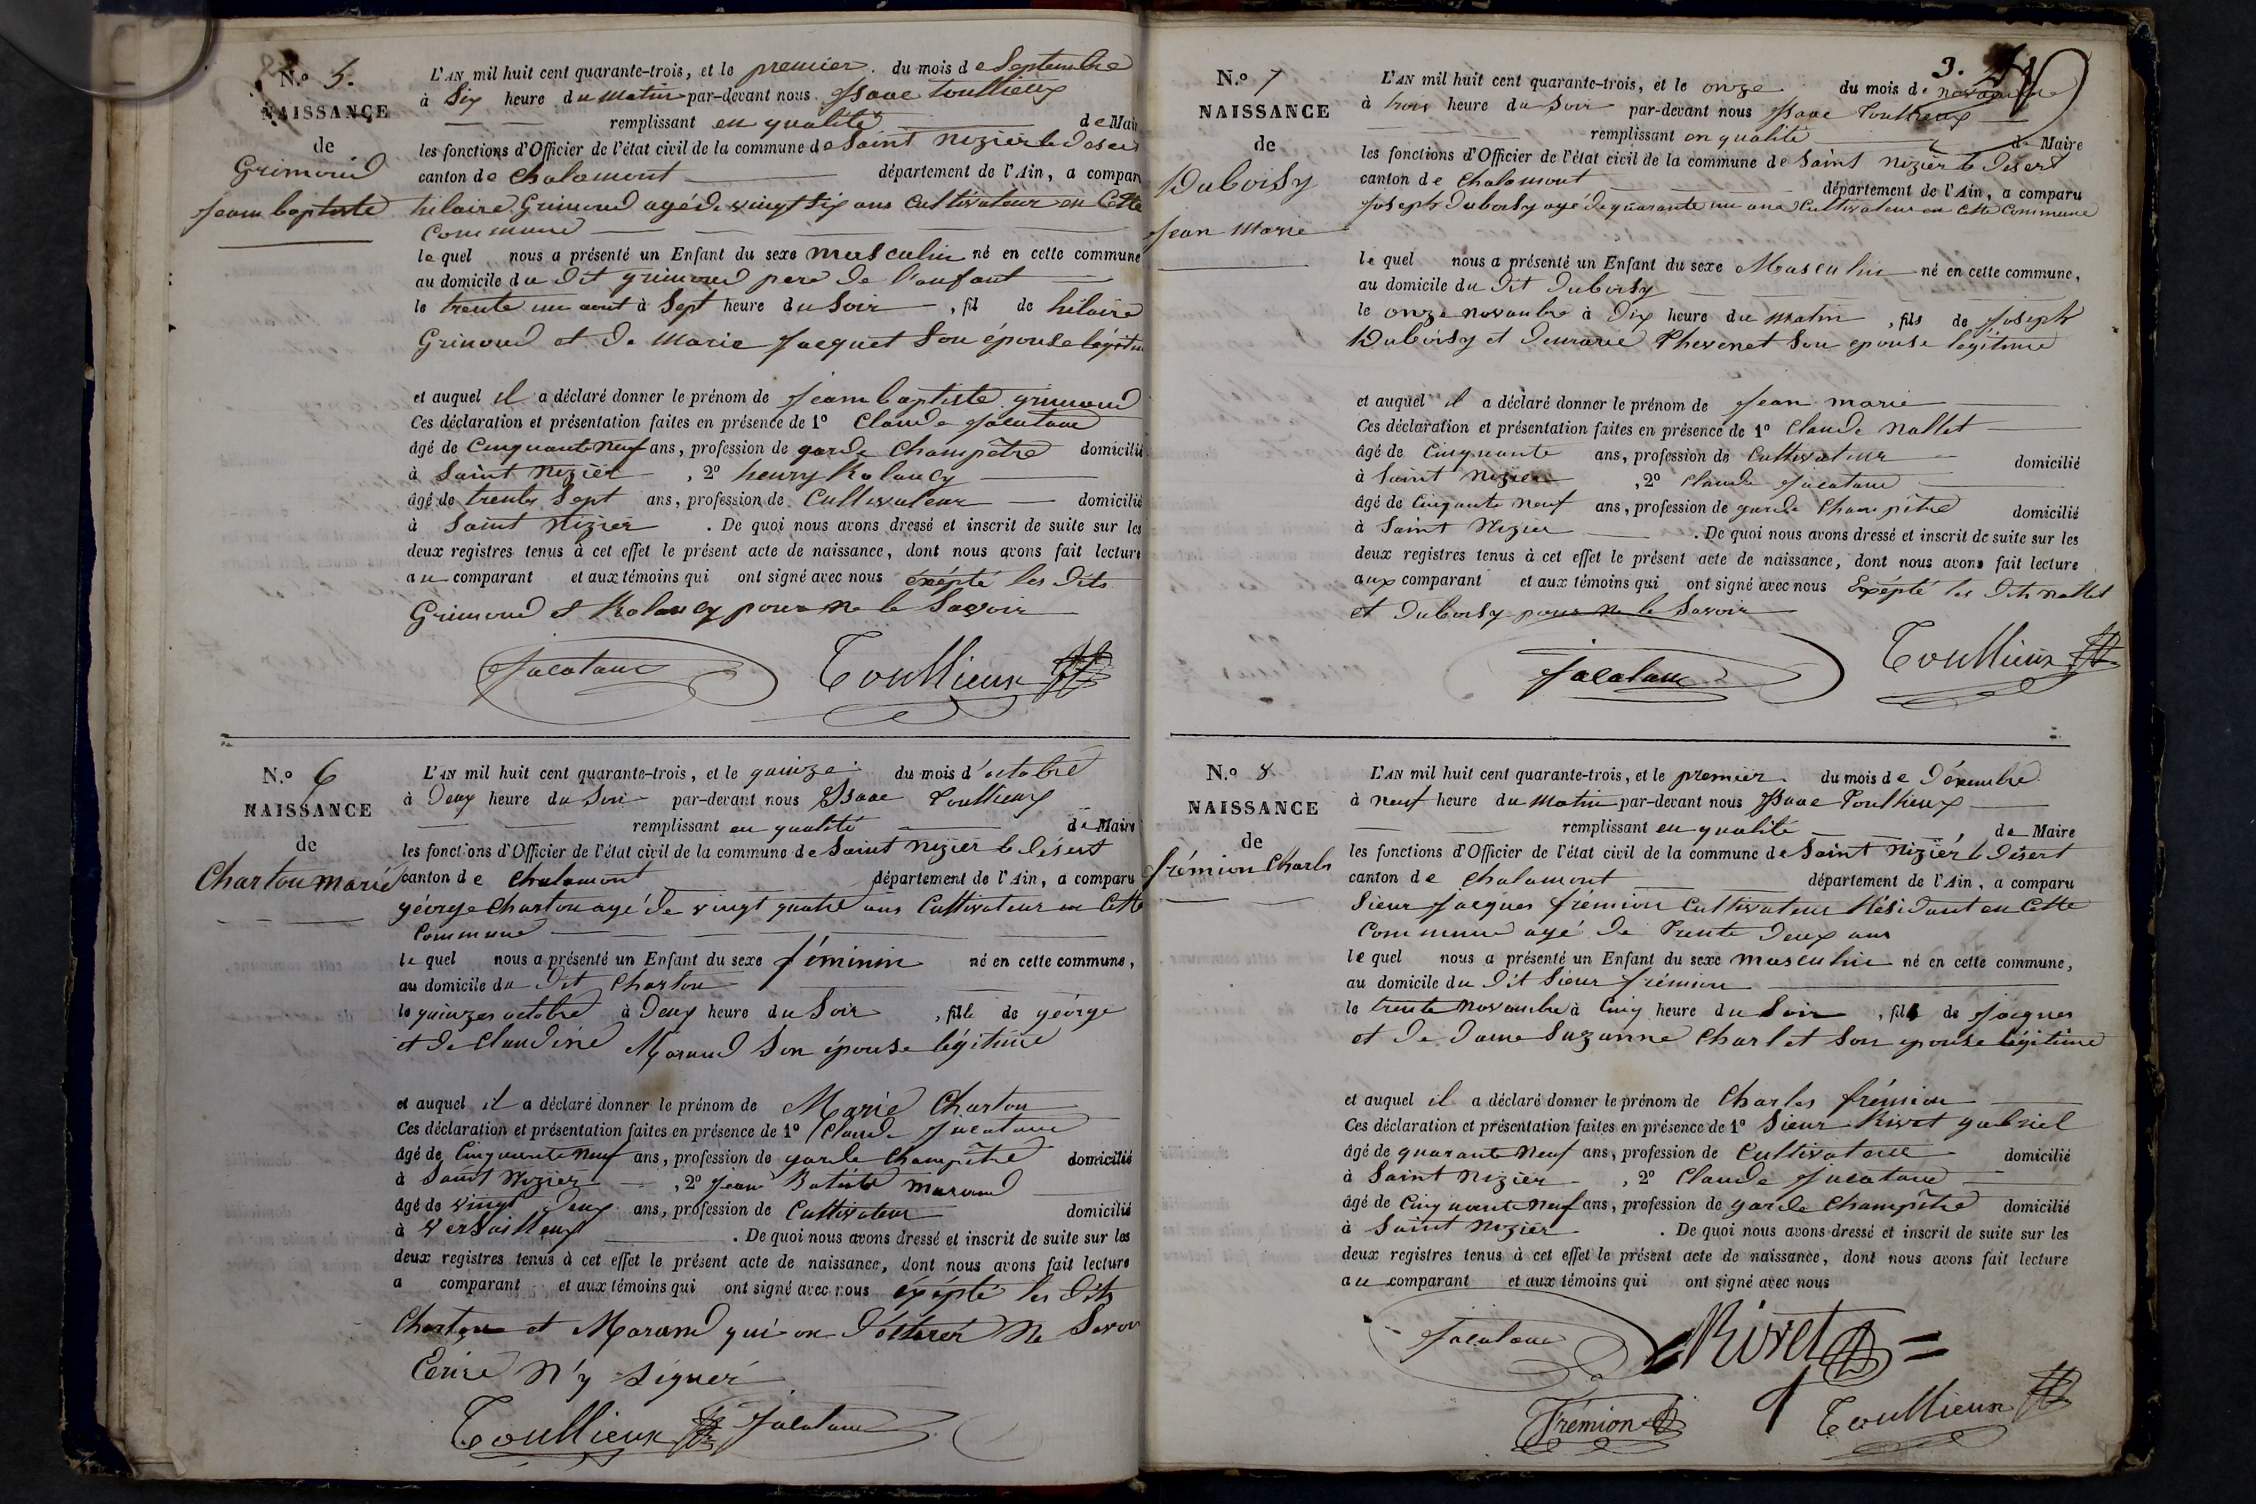 N.o 5.
NAISSANCE
de
Grimoud
Jean baptiste
L'AN mil huit cent quarante-trois, et le premier du mois de Septembre
à Six heure du Matin par-devant nous Isaac Toullieux
remplissant en qualité de Mair
les fonctions d'Officier de l'état civil de la commune de Saint Nizier le Desert
canton de Chalamont département de l'Ain, a compar
hilaire Grimoud agé de vingt six ans Cultivateur en Cette
Commune
le quel nous a présenté un Enfant du sexe masculin né en cette commune
au domicile du dit grimoud pere de l'enfant
le trente un aout à Sept heure du Soir, fil de hilaire
Grimoud et de Marie Jacquet Son épouse légitim
et auquel il a déclaré donner le prénom de Jean baptiste grimoud
Ces déclaration et présentation faites en présence de 1o Claude
âgé de Cinquante Neuf ans, profession de garde Champêtre domicilié
à Saint Nizier, 2o henry
âgé de trente Sept ans, profession de Cultivateur domicilié
à Saint Nizier. De quoi nous avons dressé et inscrit de suite sur les
deux registres tenus à cet effet le présent acte de naissance, dont nous avons fait lecture
au comparant et aux témoins qui ont signé avec nous éxépté les dits
Grimoud et pour ne le Savoir
Toullieux
N.o 6
NAISSANCE
de
Charton marie
L'AN mil huit cent quarante-trois, et le quinze du mois d'octobre
à Deux heure du Soir par-devant nous Isaac Toullieux
remplissant en qualité de Maire
les fonctions d'Officier de l'état civil de la commune de Saint Nizier le Désert
canton de Chalamont département de l'Ain, a comparu
géorge Charton agé de vingt quatre ans Cultivateur en Cette
Commune
le quel nous a présenté un Enfant du sexe féminin né en cette commune,
au domicile du Dit Charton
le quinzes octobre à Deux heure du Soir, fille de géorge
et de Claudine Morand Son épouse légitime
et auquel il a déclaré donner le prénom de Marie Charton
Ces déclaration et présentation faites en présence de 1o Claude
âgé de Cinquante Neuf ans, profession de garde Champêtre domicilié
à Saint Nizier, 2o Jean Batiste Morand
âgé de vingt Deux ans, profession de Cultivateur domicilié
à Versailleux. De quoi nous avons dressé et inscrit de suite sur les
deux registres tenus à cet effet le présent acte de naissance, dont nous avons fait lecture
a comparant et aux témoins qui ont signé avec nous éxépté les dits
Charton et Morand qui on ne Savoir
Ecrire N'y Signér
Toullieux
3.
N.o 7
NAISSANCE
de
Duboisy
Jean Marie
L'AN mil huit cent quarante-trois, et le onze du mois de novembre
à trois heure du Soir par-devant nous Isaac Toullieux
remplissant en qualité de Maire
les fonctions d'Officier de l'état civil de la commune de Saint Nizier le Désert
canton de Chalamont département de l'Ain, a comparu
Joseph Duboisy agé de quarante un ans Cultivateur en Cette Commune
le quel nous a présenté un Enfant du sexe Masculin né en cette commune,
au domicile du Dit Duboisy
le onze novembre à Dix heure du Matin, fils de Joseph
Duboisy et Thevenet Son epouse légitime
et auquel il a déclaré donner le prénom de Jean marie
Ces déclaration et présentation faites en présence de 1o Claude Nallet
âgé de Cinquante ans, profession de Cultivateur domicilié
à Saint Nizier, 2o Claude
âgé de Cinquante Neuf ans, profession de garde Champêtre domicilié
à Saint Nizier. De quoi nous avons dressé et inscrit de suite sur les
deux registres tenus à cet effet le présent acte de naissance, dont nous avons fait lecture
aux comparant et aux témoins qui ont signé avec nous Exépté les Dits Nallet
et Duboisy pour ne le Savoir
Toullieux
N.o 8
NAISSANCE
de
frémion Charles
L'AN mil huit cent quarante-trois, et le premier du mois de Décembre
à neuf heure du Matin par-devant nous Isaac Toullieux
remplissant en qualité de Maire
les fonctions d'Officier de l'état civil de la commune de Saint Nizier le Désert
canton de Chalamont département de l'Ain, a comparu
Sieur Jacques frémion Cultivateur Résidant en Cette
Commune agé de Trente Deux ans
le quel nous a présenté un Enfant du sexe masculin né en cette commune,
au domicile du Dit Sieur frémion
le trente Novembre à Cinq heure du Soir, fils de Jacques
et de Dame Suzanne Charlet Son epouse légitime
et auquel il a déclaré donner le prénom de Charles frémion
Ces déclaration et présentation faites en présence de 1o Sieur Rivet gabriel
âgé de quarante Neuf ans, profession de Cultivateur domicilié
à Saint Nizier, 2o Claude
âgé de Cinquante Neuf ans, profession de garde Champêtre domicilié
à Saint Nizier. De quoi nous avons dressé et inscrit de suite sur les
deux registres tenus à cet effet le présent acte de naissance, dont nous avons fait lecture
au comparant et aux témoins qui ont signé avec nous
Rivet
Frémion
Toullieux